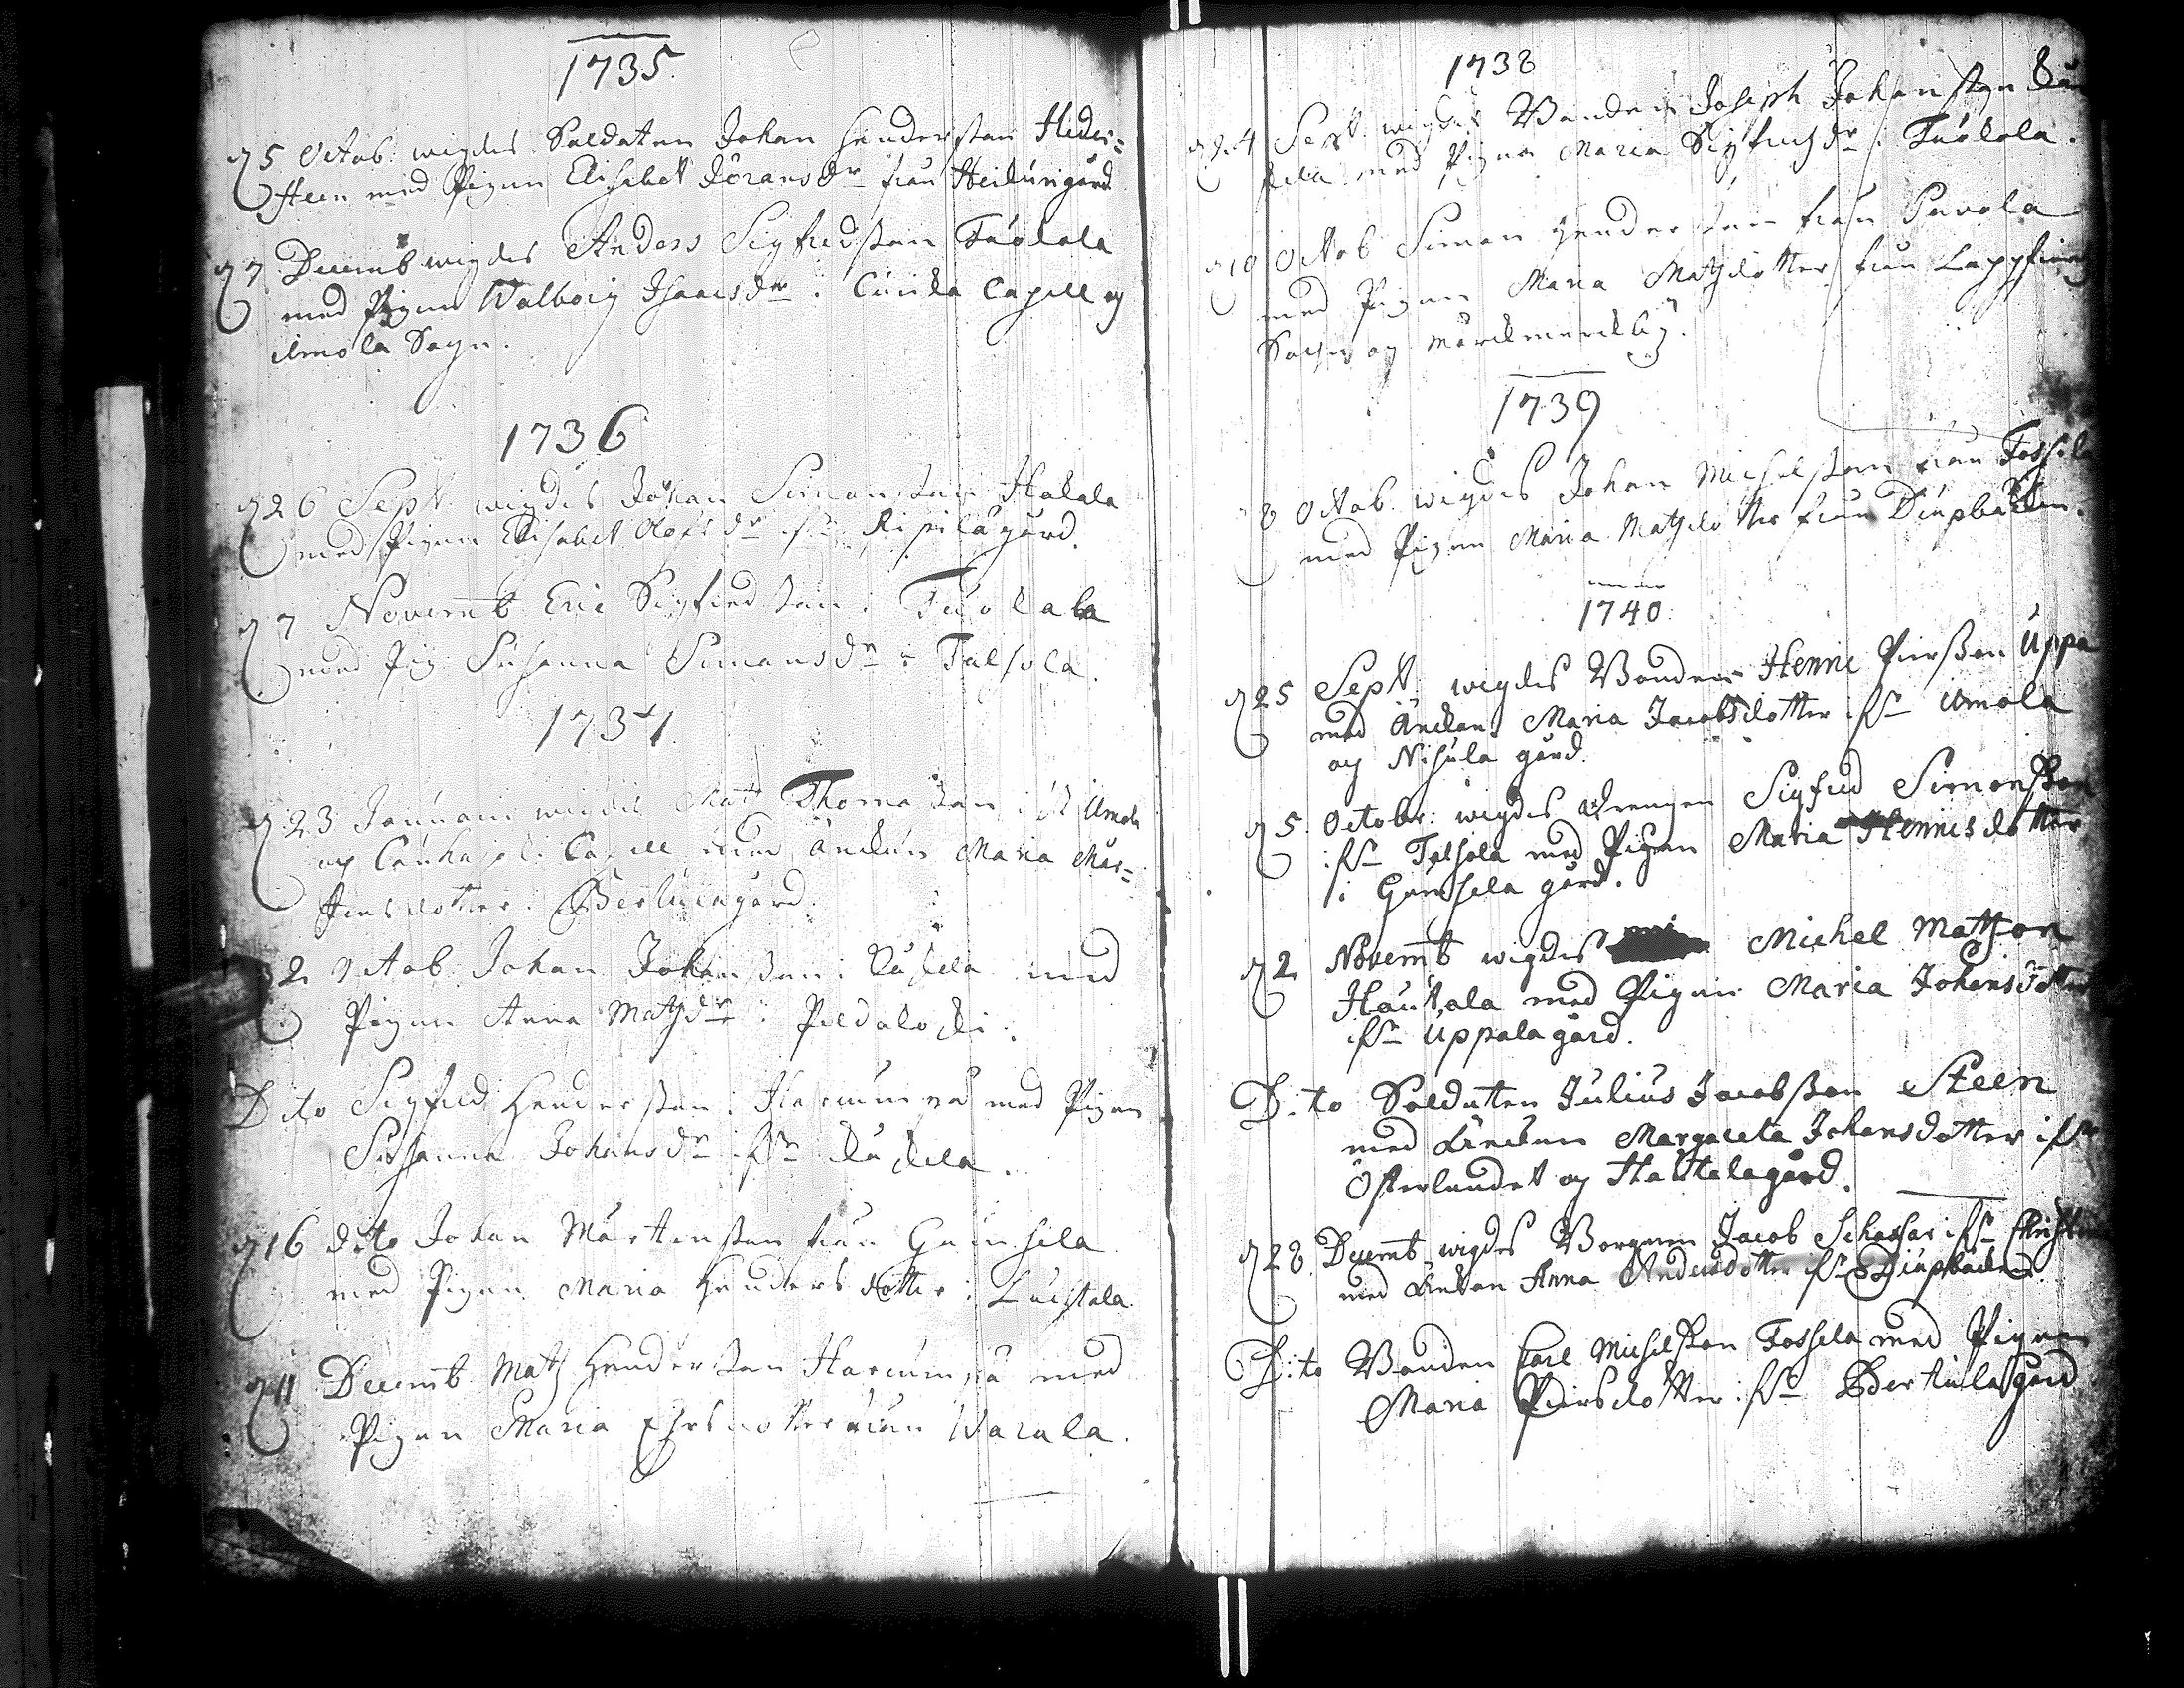 1735
d 5 Octob: wigdes Soldaten Johan Hendersson Heder=
steen med Pigan Elisabet Jöransdr från Heikurigård
d 7 Decemb wigdes Anders Sigfredsson Tuolala
med Pigan Walborg Isaacsdr i Capell og
Ilmola Sogn.
1736
d 26 Sept. wigdes Johan Simonsson Hakala
med Pigan Elisabet Olofsdr ifr Ripilägård.
d 7 Novemb Eric Sigfredsson i Tuolala
med Pig Susanna Simonsdr i Talsola.
1737
d 23 Januarii wigdes Matz Thomasson ifr Ilmola
og Capell med Änckan Maria Mår=
tensdotter i Bertulagård.
d 2 Octob Johan Johansson i Kåskila med
Pigan Anna Matzdr i
Dito Sigfred Hendersson i Harcumpä med Pigan
Susanna Johansdr ifr Kåskila.
d 16 dito Johan Mårtensson från Gunsila
med Pigan Maria Hendersdotter i
d 11 Decemb Matz Hendersson Harcumpä med
Pigan Maria dotter från Warala.
8
1738
d 24 Sept. wigdes Bonden Joseph Johansson Kås
kila med Pigan Maria Sigfredsdr i Tuolala.
d 10 Octob Simon Hendersson från Pavola
med Pigan Maria Matzdotter från Lappfierd
Sochn og Märckmerckby.
1739
8 Octob. wigdes Johan Michelsson från Tossila
med Pigan Maria Matzdotter från Diupbäcken.
1740
d 25 Sept. wigdes Bonden Henric Pärsson Uppa
med Änckan Maria Jacobsdotter ifr Ilmola
og Nisula gård.
d 5 Octobr: wigdes drengen Sigfred Simonsson
ifr Talsola med Pigan Maria Hennisdotter
i Gunsila gård.
d 2 Novemb wigdes Michel Mattson
Hautala med Pigan Maria Johansdotter
ifr Uppala gård.
Dito Soldaten Julius Jacobsson Steen
med Änckan Margareta Johansdotter ifr
Österlandet og Hattalagård.
d 28 Decemb wigdes Borgaren Jacob ifr
med Enkan Anna Andersdotter ifr Diupbäcken
Dito Bonden Carl Michelsson Tossila med Pigan
Maria Pärsdotter ifr Bertula gård